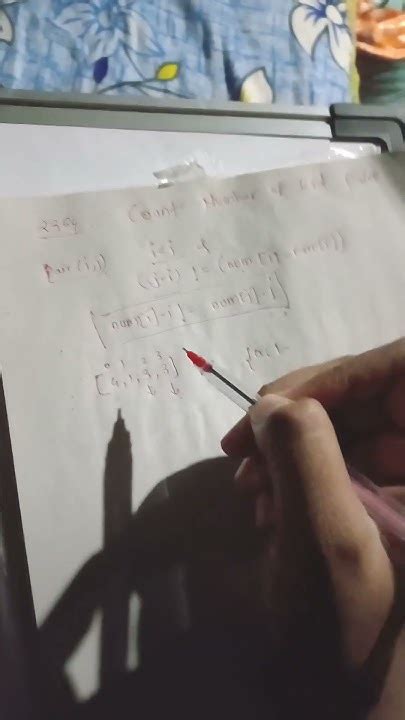 2364 Count Number of Bad Pairs
Pair(i,j) i<j &
(j-i) != (nums[j] - nums[i])
nums[i]-i != nums[j]-j
0 1 2 3
[4,1,3,3]